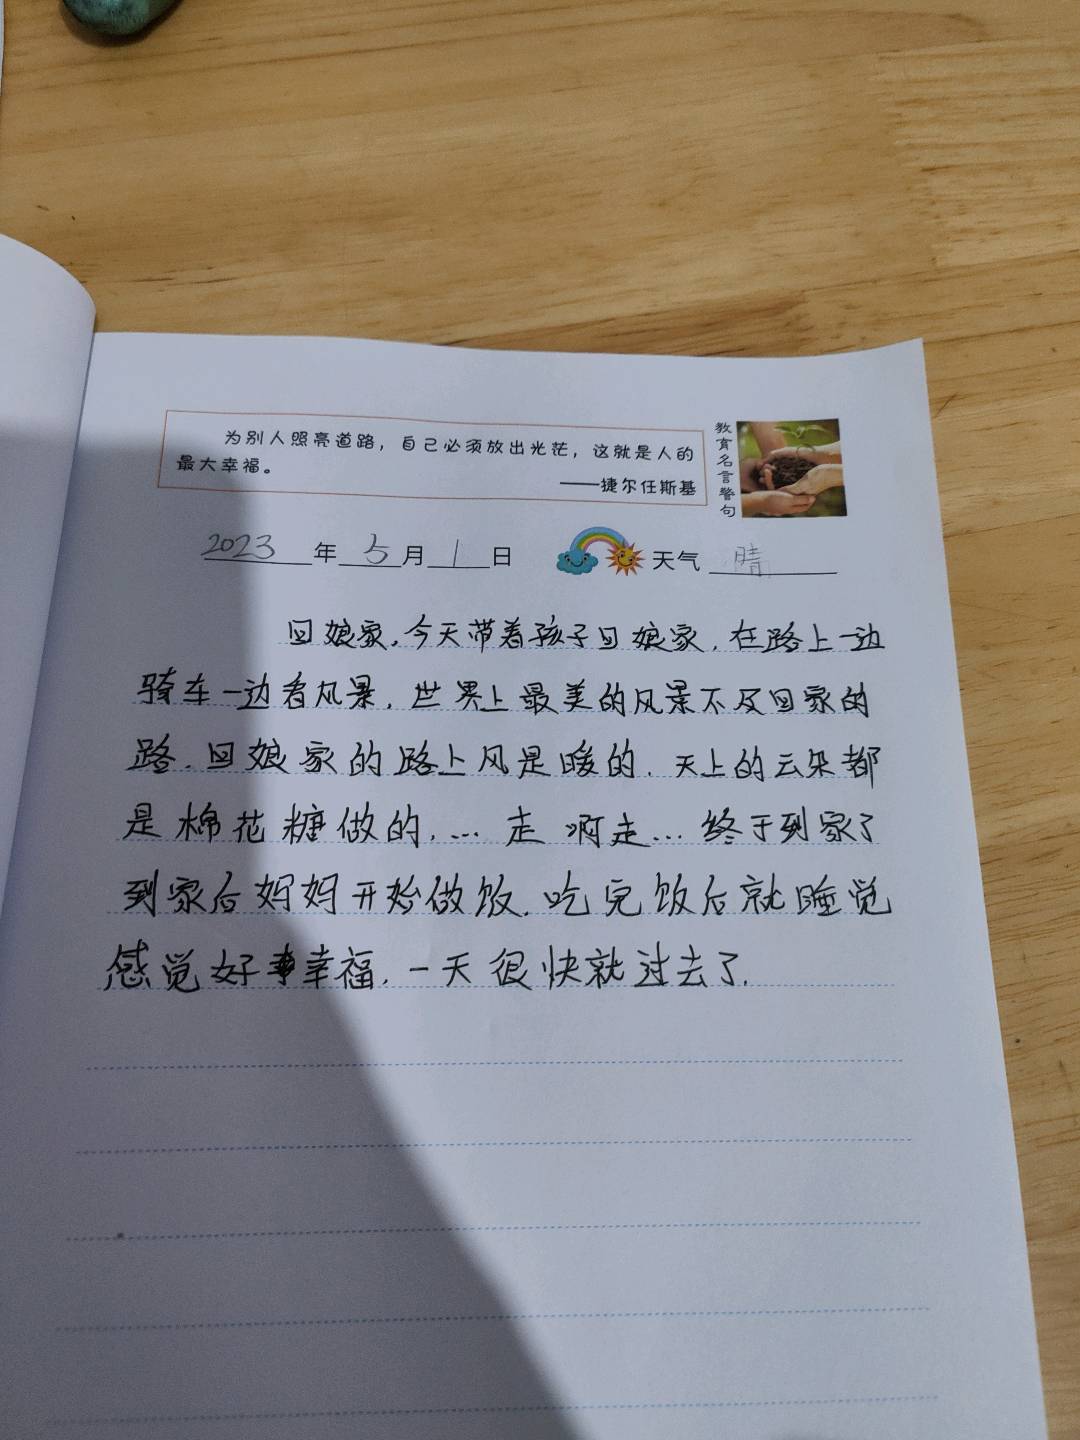 为别人照亮道路，自己必须放出光芒，这就是人的
最大幸福。
——捷尔任斯基
教育名言警句
2023年5月1日 天气 晴
回娘家.今天带着孩子回娘家.在路上一边
骑车一边看风景.世界上最美的风景不及回家的
路.回娘家的路上风是暖的.天上的云朵都
是棉花糖做的.…走啊走…终于到家了
到家后妈妈开始做饭.吃完饭后就睡觉
感觉好幸福.一天很快就过去了.